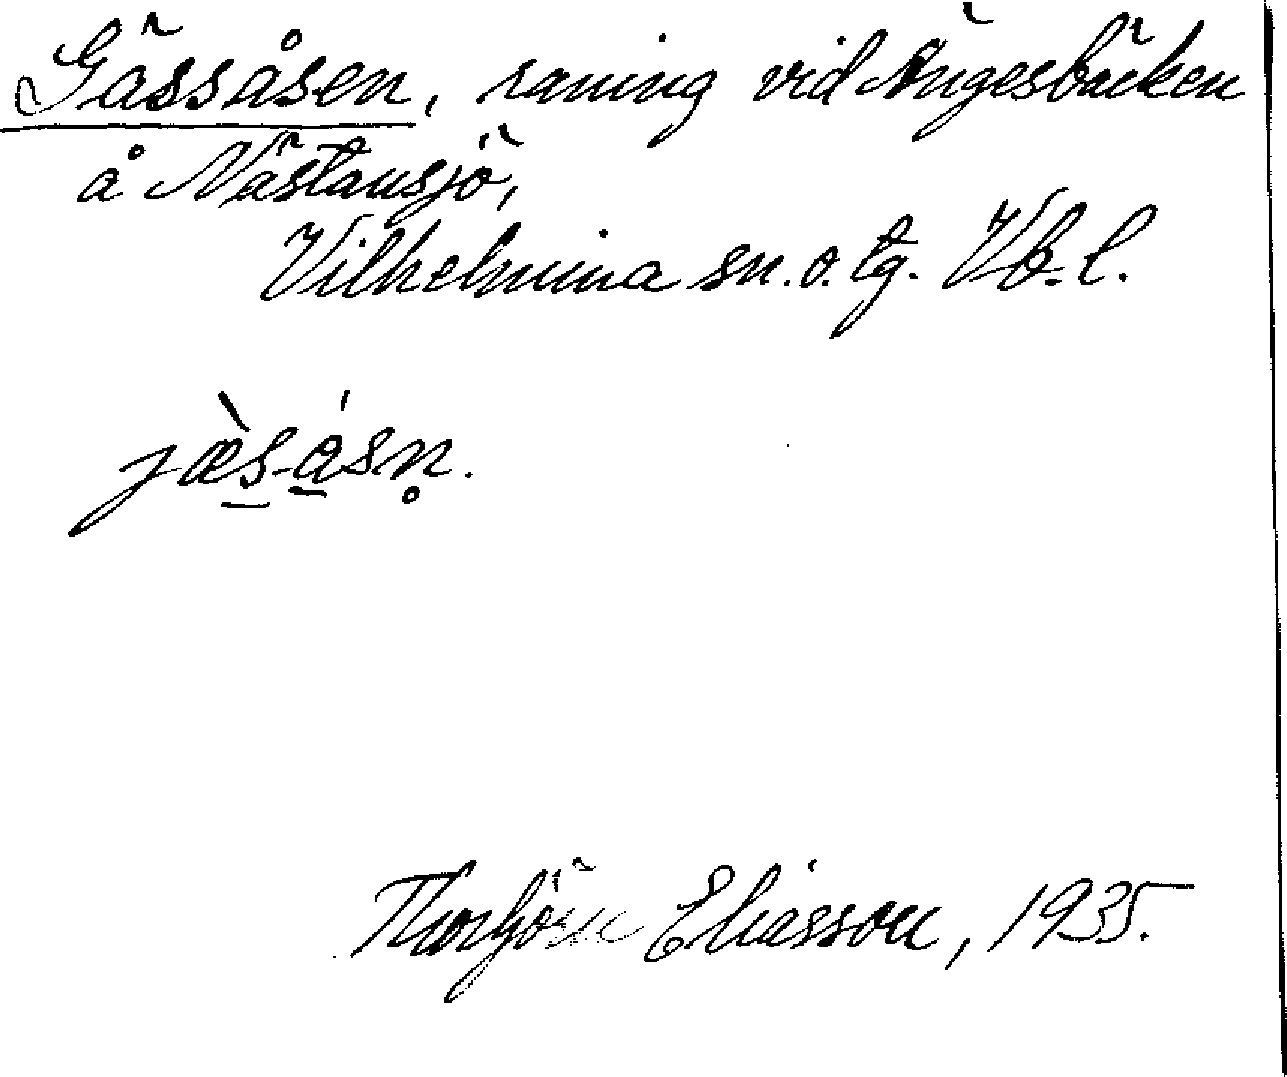 Gässåsen, raning vid Ängesbäcken
å Nästansjö,
Vilhelmina sn. o. tg. Vb. l.
jæ̀s-ásn̥.
Thorbjörn Eliasson, 1935.